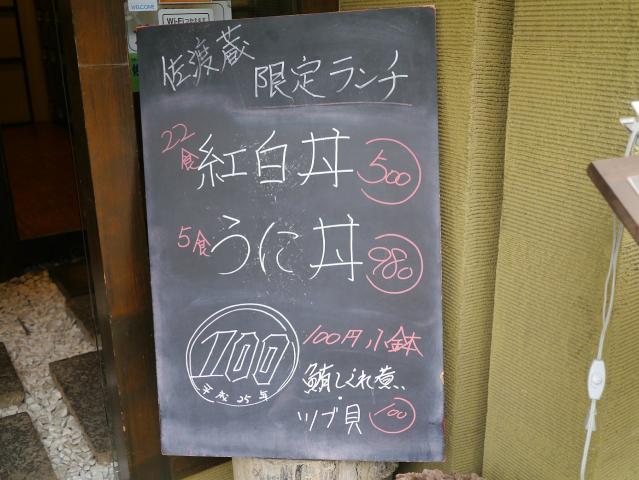 WELCOME
Wi-Fi
佐渡蔵
限定ランチ
22食 紅白丼 500
5食 うに丼 980
100
平成25年
100円小鉢
鮪しぐれ煮
ツブ貝 100